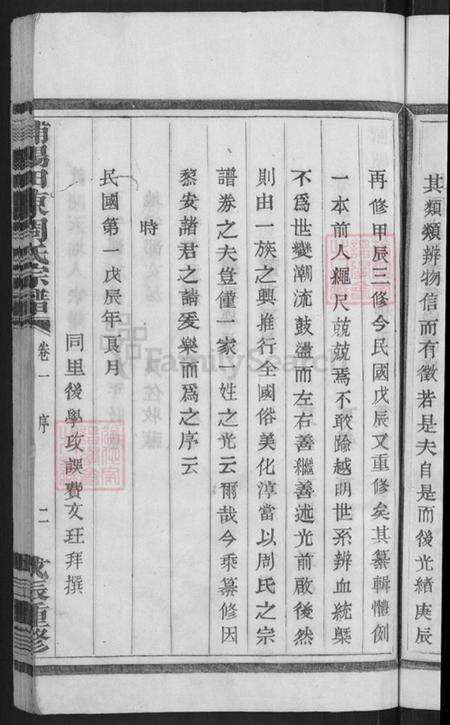 其類類辨物信而有徵若是夫自是而後光緒庚辰
再修甲辰三修今民國戊辰又重修矣其纂輯體例
一本前人繩尺兢兢焉不敢踰越明世系辨血統槩
不爲世變潮流鼓盪而左右善繼善述光前啟後然
則由一族之興推行全國俗美化淳當以周氏之宗
譜券之夫豈僅一家一姓之光云爾哉今乘纂修因
黎安諸君之請爰樂而爲之序云
時
民國第一戊辰年夏月
同里後學攻課費文玨拜撰
浦陽田東周氏宗譜
卷一 序 二
戊辰重修
FamilySearch